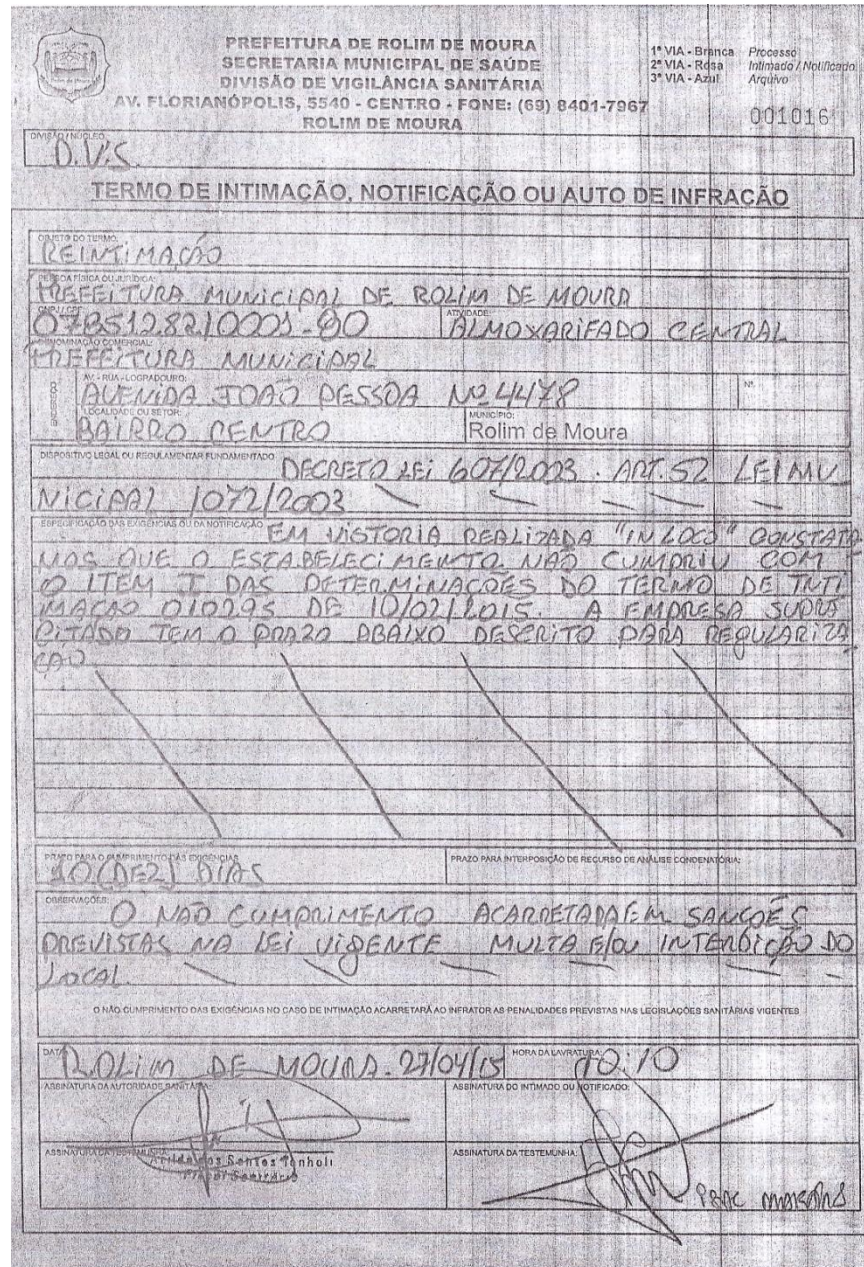 PREFEITURA DE ROLIM DE MOURA
SECRETARIA MUNICIPAL DE SAÚDE
DIVISÃO DE VIGILÂNCIA SANITÁRIA
AV. FLORIANÓPOLIS, 5540 - CENTRO - FONE: (69) 8401-7967
ROLIM DE MOURA
1ª VIA - Branca Processo
2ª VIA - Rosa Intimado / Notificado
3ª VIA - Azul Arquivo
001016
DIVISÃO / NÚCLEO
D.V.S.
TERMO DE INTIMAÇÃO, NOTIFICAÇÃO OU AUTO DE INFRAÇÃO
OBJETO DO TERMO:
REINTIMAÇÃO
PESSOA FÍSICA OU JURÍDICA:
PREFEITURA MUNICIPAL DE ROLIM DE MOURA
CNPJ / CPF
ATIVIDADE:
ALMOXARIFADO CENTRAL
DENOMINAÇÃO COMERCIAL:
PREFEITURA MUNICIPAL
AV. - RUA - LOGRADOURO:
Nº
AVENIDA JOÃO PESSOA Nº 4478
LOCALIDADE OU SETOR:
BAIRRO CENTRO
MUNICÍPIO:
Rolim de Moura
DISPOSITIVO LEGAL OU REGULAMENTAR FUNDAMENTADO
DECRETO LEI 607/2003. ART. 52 LEI MU
NICIPAL 1072/2003
ESPECIFICAÇÃO DAS EXIGÊNCIAS OU DA NOTIFICAÇÃO
EM VISTORIA REALIZADA "IN LOCO" CONSTATA
MOS QUE O ESTABELECIMENTO NÃO CUMPRIU COM
O ITEM I DAS DETERMINAÇÕES DO TERMO DE INTI
MAÇÃO 010295 DE 10/02/2015. A EMPRESA SUPRA
CITADO TEM O PRAZO ABAIXO DESCRITO PARA REGULARIZA
ÇÃO
PRAZO PARA O CUMPRIMENTO DAS EXIGÊNCIAS
10 (DEZ) DIAS
PRAZO PARA INTERPOSIÇÃO DE RECURSO DE ANÁLISE CONDENATÓRIA:
OBSERVAÇÕES:
O NÃO CUMPRIMENTO ACARRETARA EM SANÇÕES
PREVISTAS NA LEI VIGENTE MULTA E/OU INTERDIÇÃO DO
LOCAL.
O NÃO CUMPRIMENTO DAS EXIGÊNCIAS NO CASO DE INTIMAÇÃO ACARRETARÁ AO INFRATOR AS PENALIDADES PREVISTAS NAS LEGISLAÇÕES SANITÁRIAS VIGENTES
DATA
ROLIM DE MOURA. 27/04/15
HORA DA LAVRATURA:
10:10
ASSINATURA DA AUTORIDADE SANITÁRIA:
ASSINATURA DO INTIMADO OU NOTIFICADO:
ASSINATURA DA TESTEMUNHA:
dos Santos Tonholi
Fiscal Sanitário
ASSINATURA DA TESTEMUNHA: